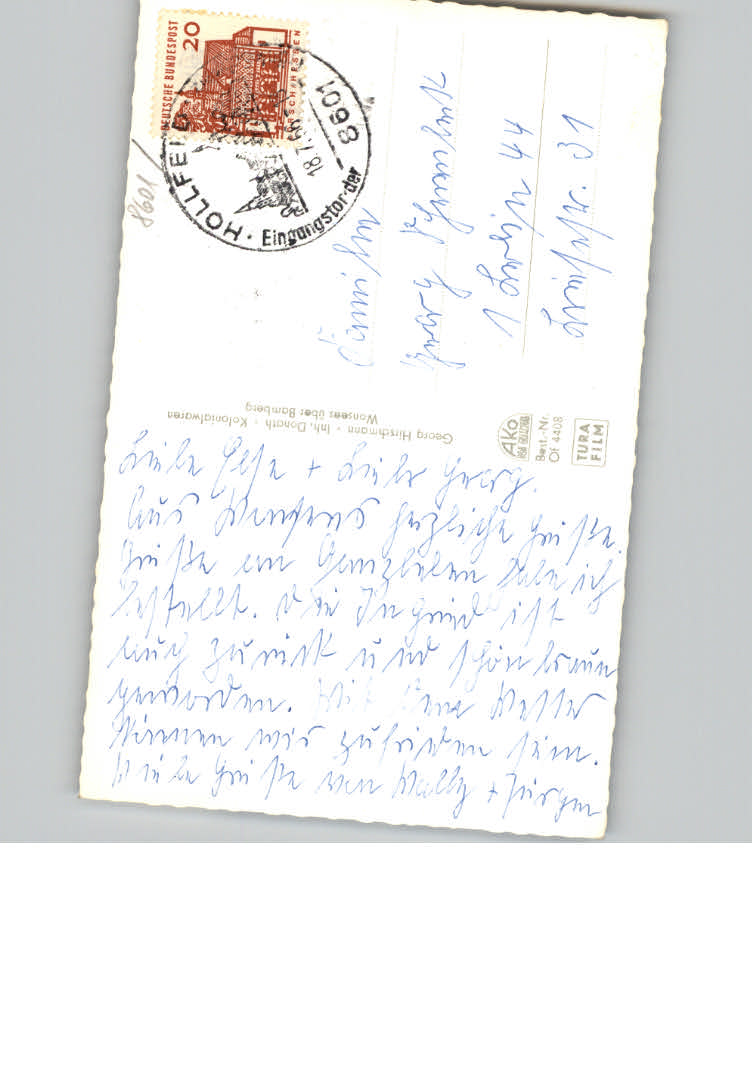 DEUTSCHE BUNDESPOST
20
LORSCH/HESSEN
8601 · HOLLFELD · Eingangstor der
18.7.
8601/
Familie
Georg
1 Berlin 44
31
Georg Hirschmann · Inh. Donath · Kolonialwaren
Wonsees über Bamberg
Ako
Best.-Nr.
Of 4408
TURA
FILM
Liebe Else + lieber Georg.
Aus Wonsees herzliche Grüße.
Grüße an habe ich
bestellt. Die Ingrid ist
auch zurück und schön braun
geworden. Mit dem Wetter
können wir zufrieden sein.
Viele Grüße von Wally + Jürgen